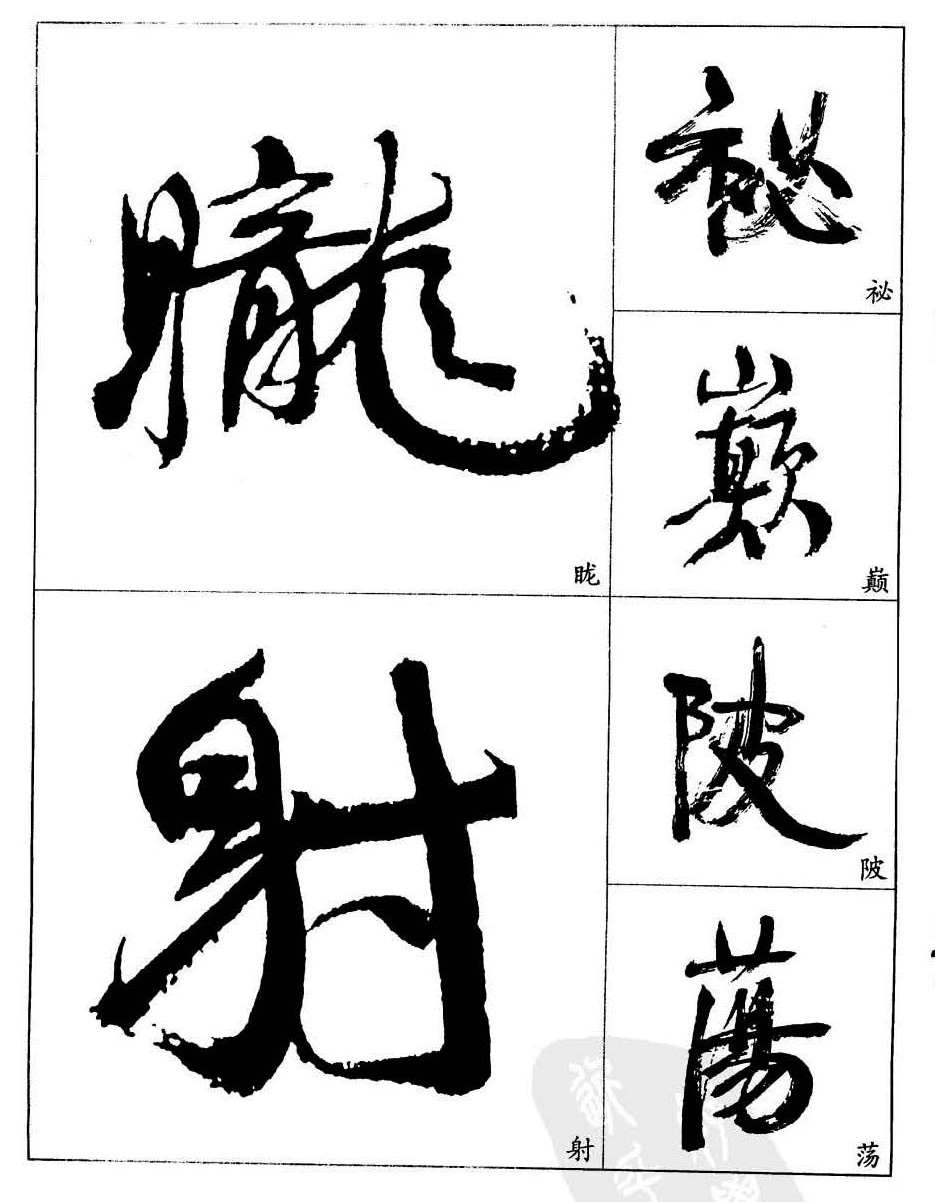 朧
眬
射
射
祕
祕
巔
巅
陂
陂
蕩
荡